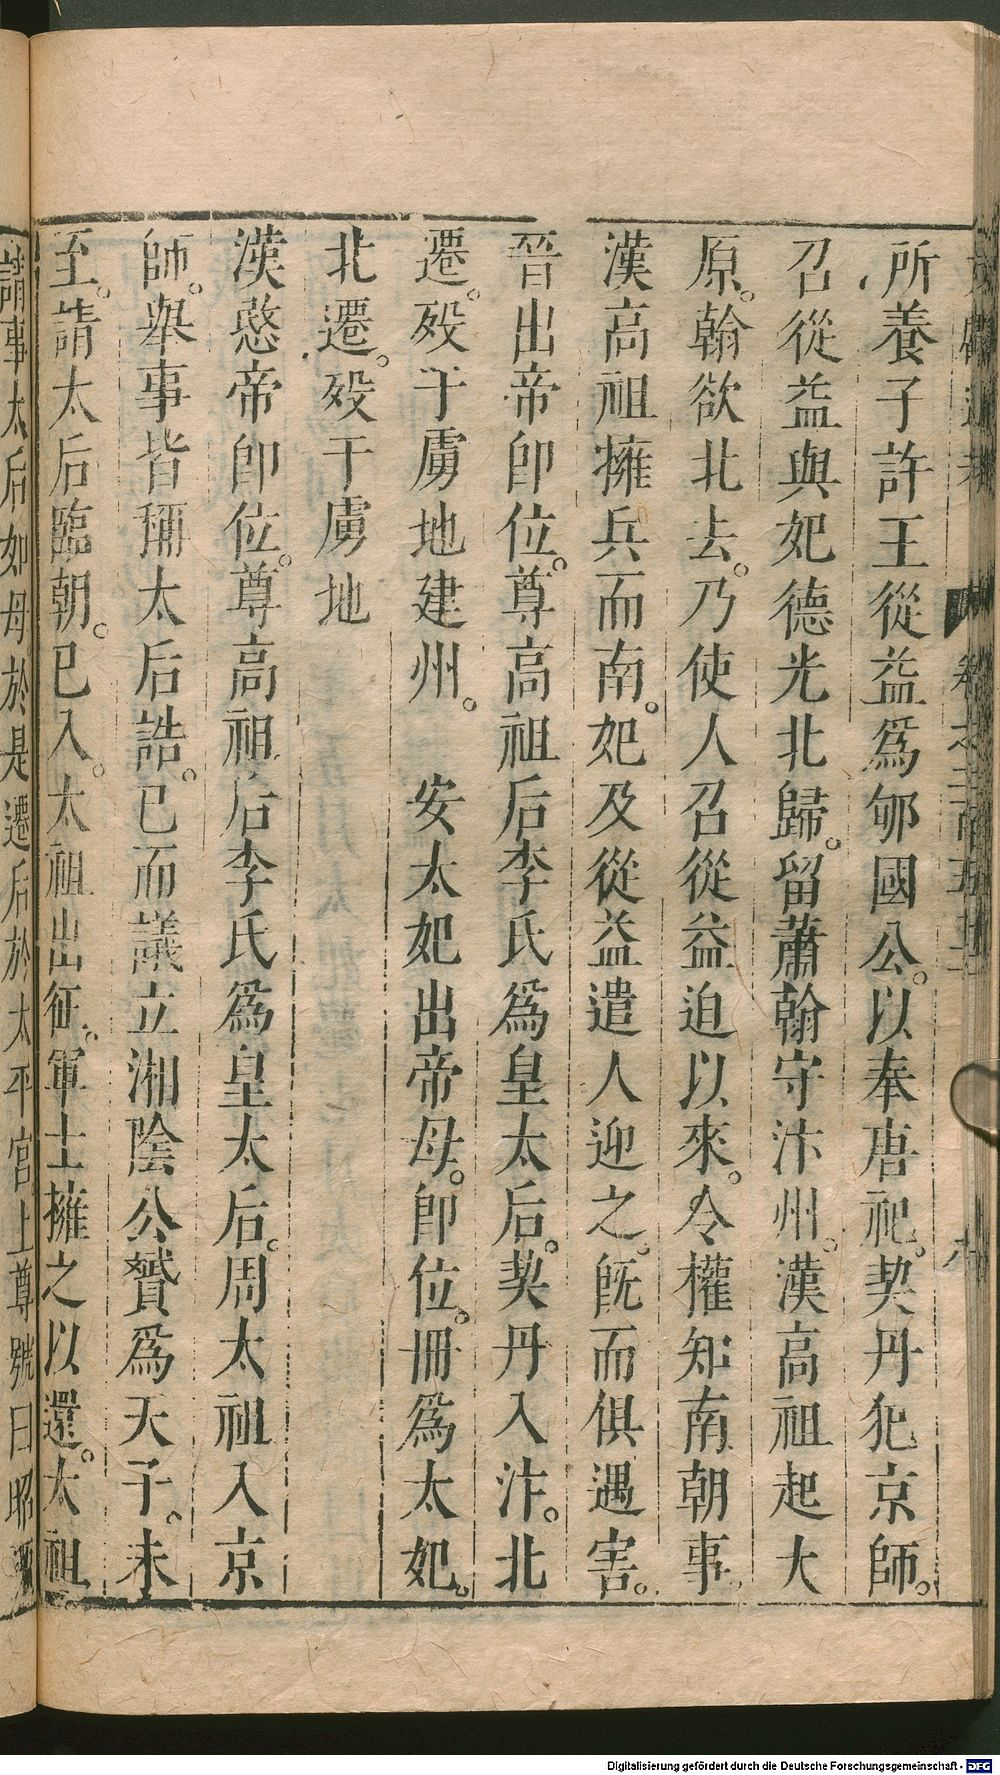 所養子許王從益爲郇國公。以奉唐祀。契丹犯京師。
召從益與妃德光北歸。留蕭翰守汴州。漢高祖起大
原。翰欲北去。乃使人召從益迫以來。令權知南朝事
漢高祖擁兵而南。妃及從益遣人迎之。旣而俱遇害。
晉出帝卽位。尊高祖后李氏爲皇太后。契丹入汴。北
遷。歿于虜地建州。 安太妃出帝母。卽位。冊爲太妃。
北遷。歿于虜地
漢愍帝卽位。尊高祖后李氏爲皇太后。周太祖入京
師。舉事皆稱太后誥。已而議立湘陰公贇爲天子。未
至。請太后臨朝。已入。太祖出征。軍士擁之以還。太祖
請事太后如母於是遷后於太平宮上尊號曰昭
Digitalisierung gefördert durch die Deutsche Forschungsgemeinschaft - DFG